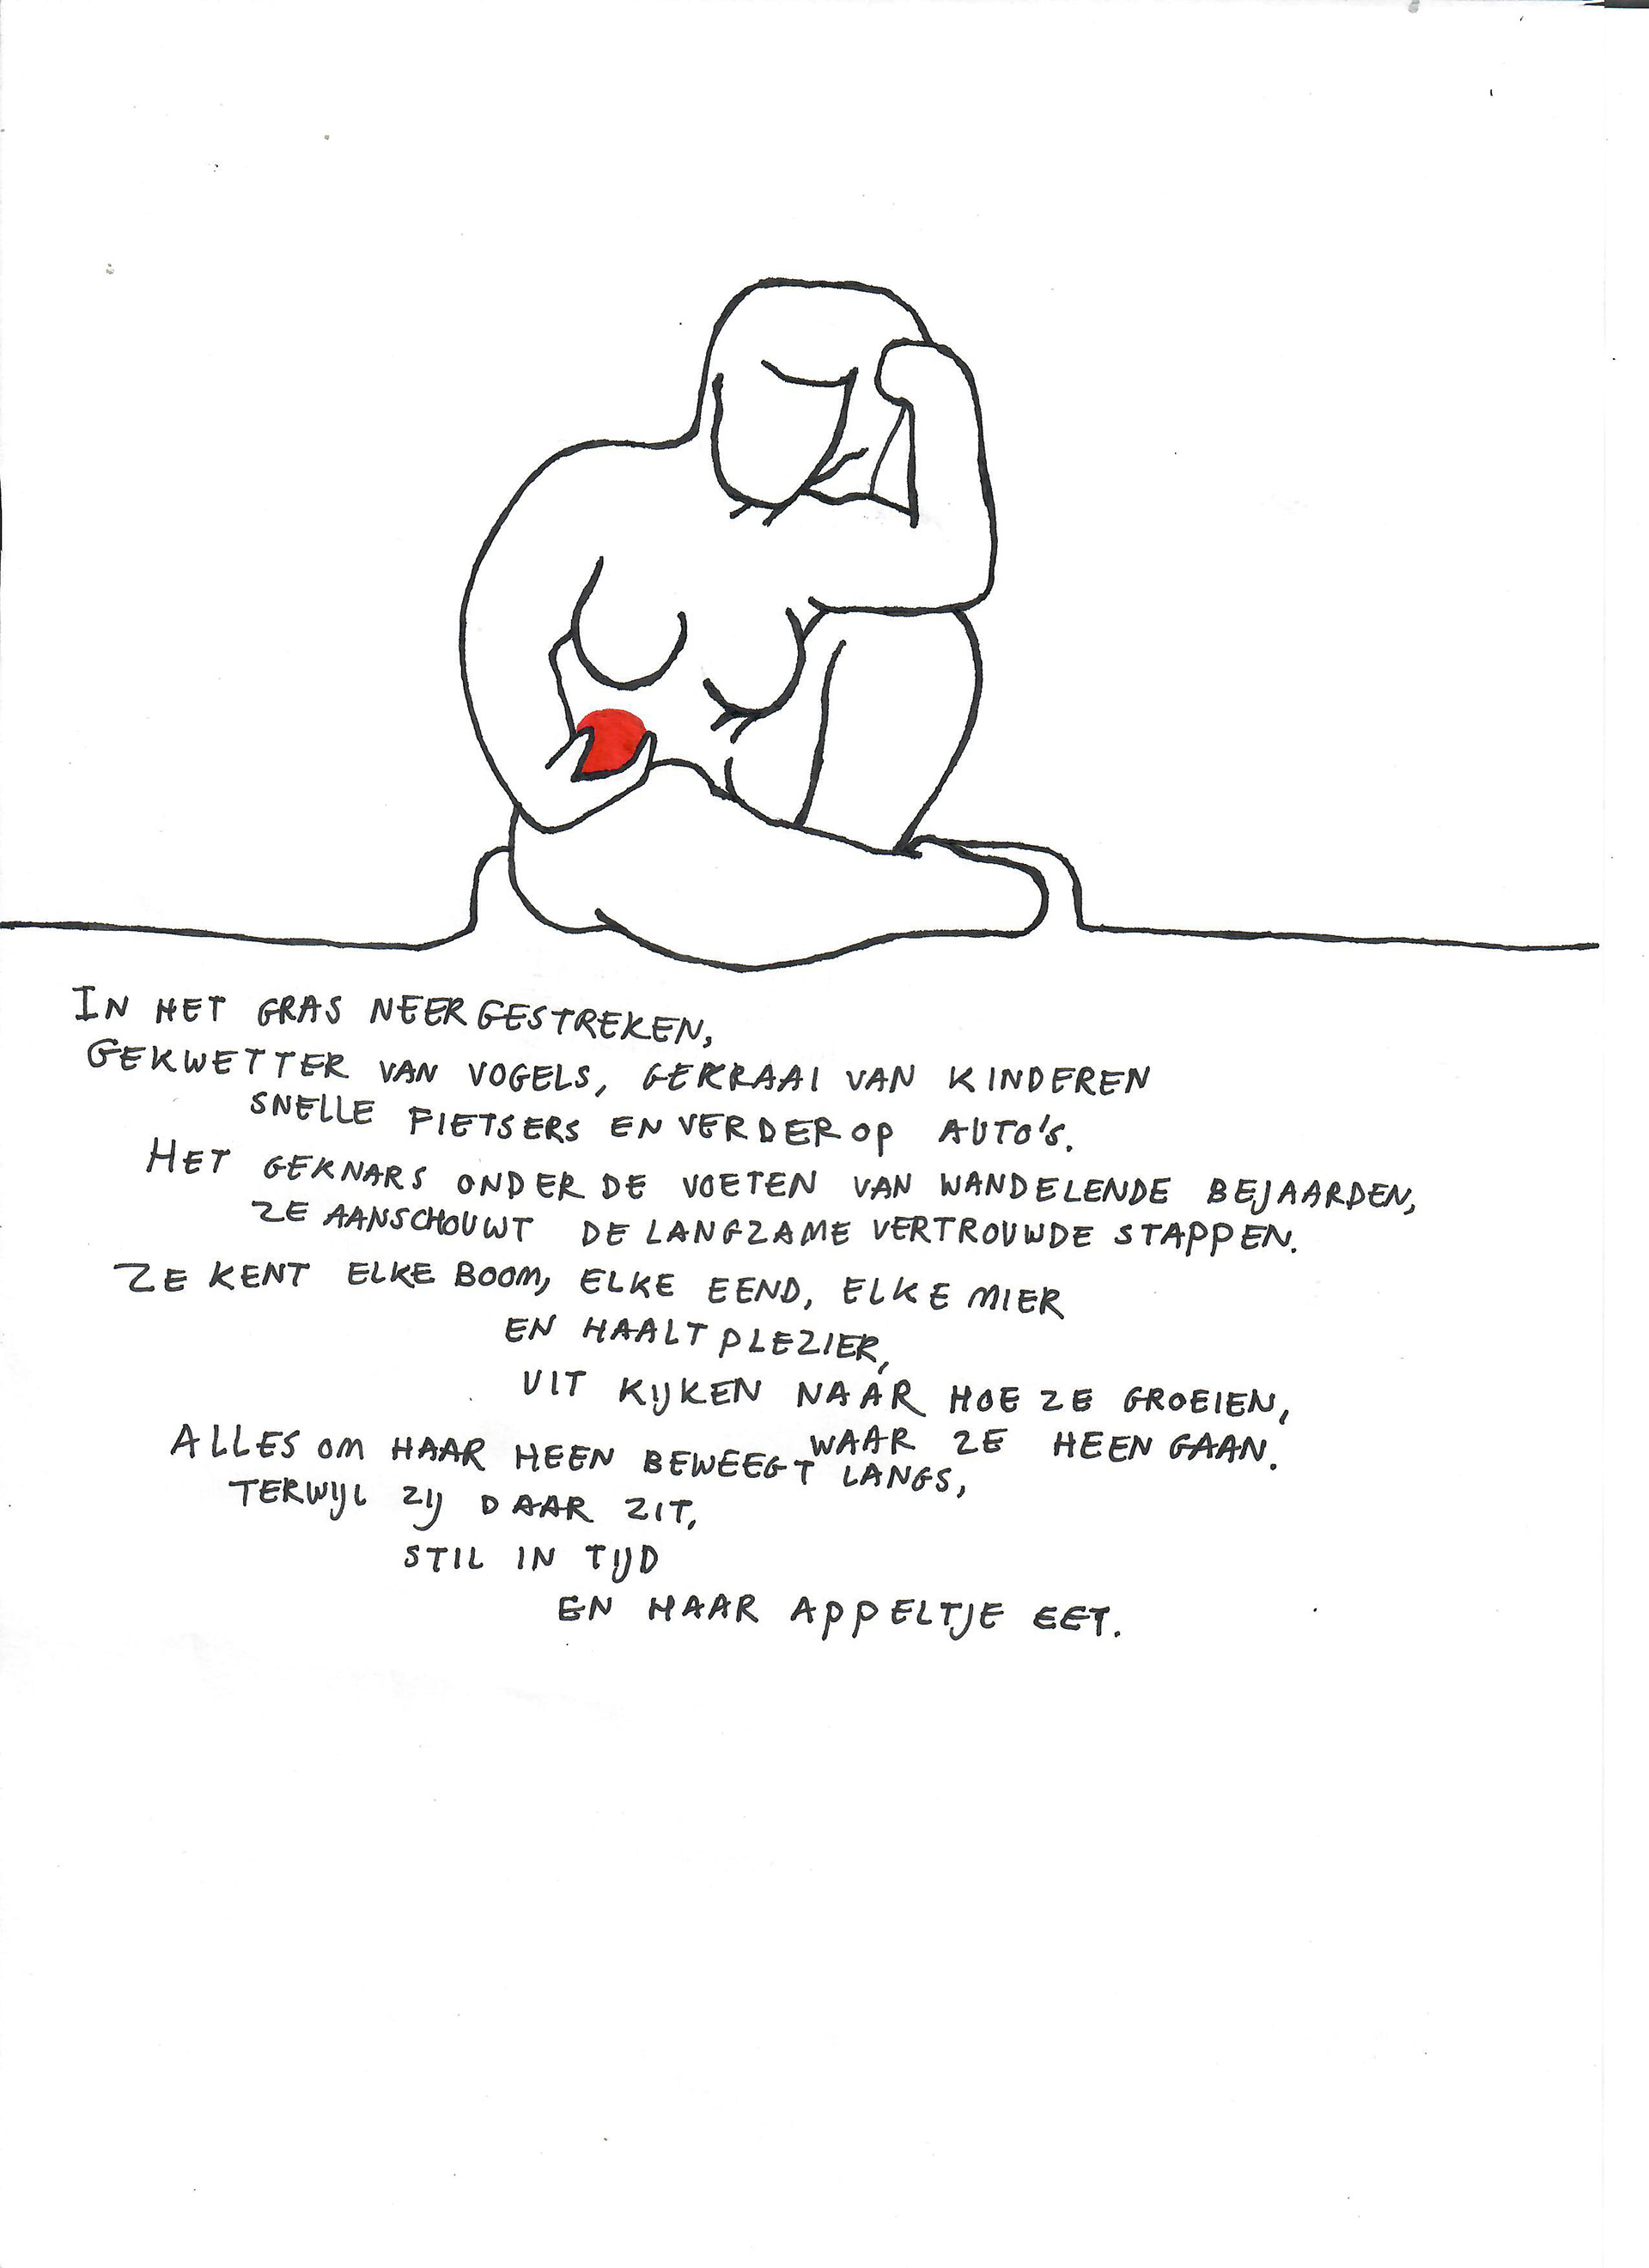 IN HET GRAS NEERGESTREKEN,
GEKWETTER VAN VOGELS, GEKRAAI VAN KINDEREN
SNELLE FIETSERS EN VERDEROP AUTO'S.
HET GEKNARS ONDER DE VOETEN VAN WANDELENDE BEJAARDEN,
ZE AANSCHOUWT DE LANGZAME VERTROUWDE STAPPEN.
ZE KENT ELKE BOOM, ELKE EEND, ELKE MIER
EN HAALT PLEZIER,
UIT KIJKEN NAAR HOE ZE GROEIEN,
WAAR ZE HEEN GAAN.
ALLES OM HAAR HEEN BEWEEGT LANGS,
TERWIJL ZIJ DAAR ZIT,
STIL IN TIJD
EN HAAR APPELTJE EET.